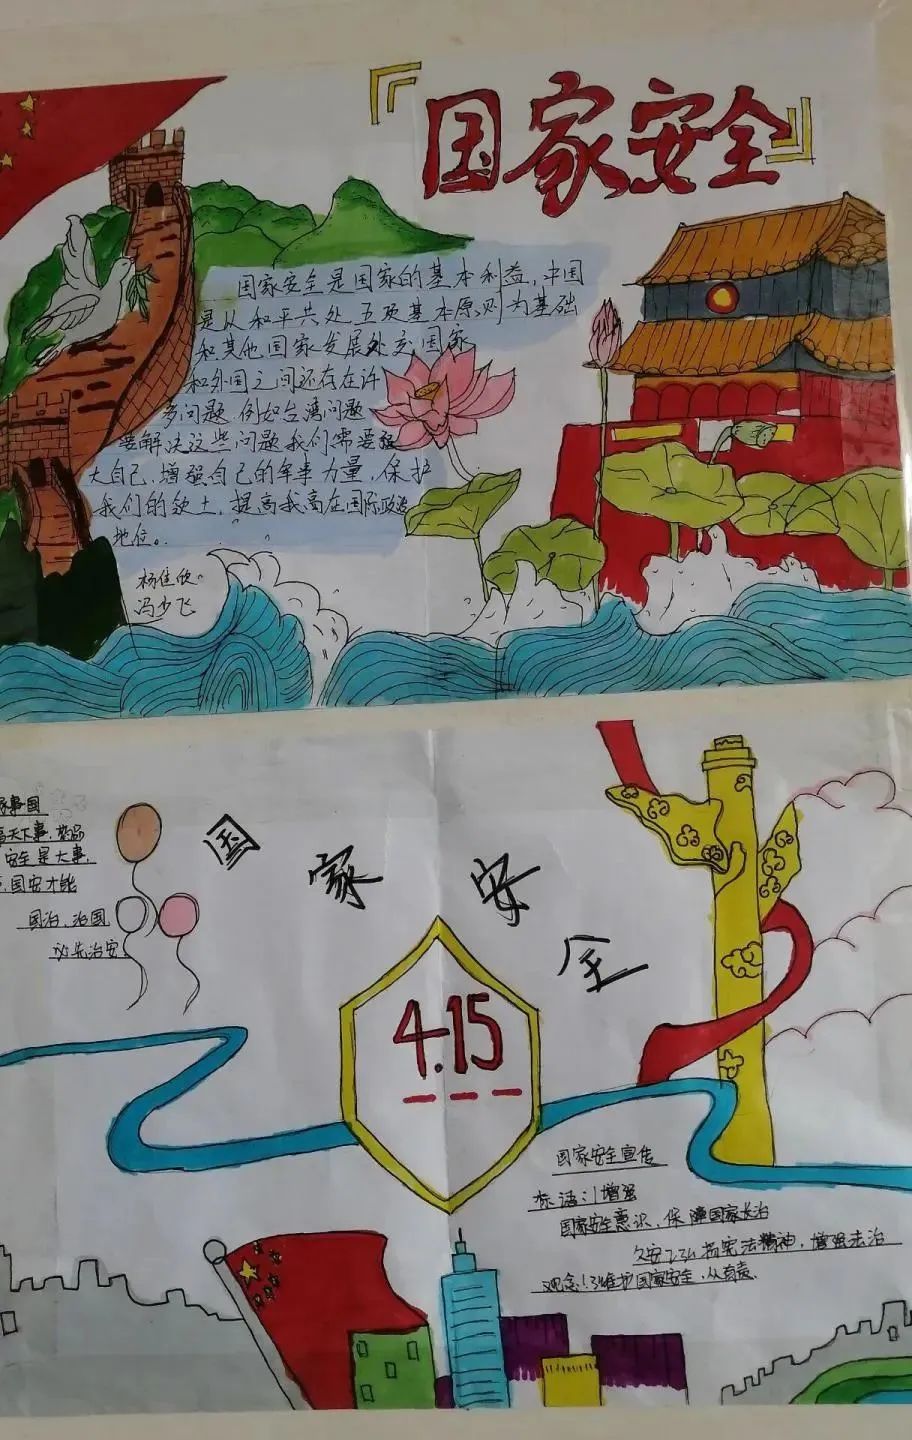 国家安全
国家安全是国家的基本利益,中国
是从和平共处五项基本原则为基础
和其他国家发展外交,国家
和外国之间还存在许
多问题,例如台湾问题
要解决这些问题我们需要强
大自己,增强自己的军事力量,保护
我们的领土,提高我高在国际政治
地位。
杨佳欣
冯少飞
家事国
天下事,
安全是大事,
国安才能
国治,治国
必先治安
国家安全
4.15
国家安全宣传
标语:1增强
国家安全意识,保障国家长治
久安!2弘扬宪法精神,增强法治
观念!3维护国家安全,人有责